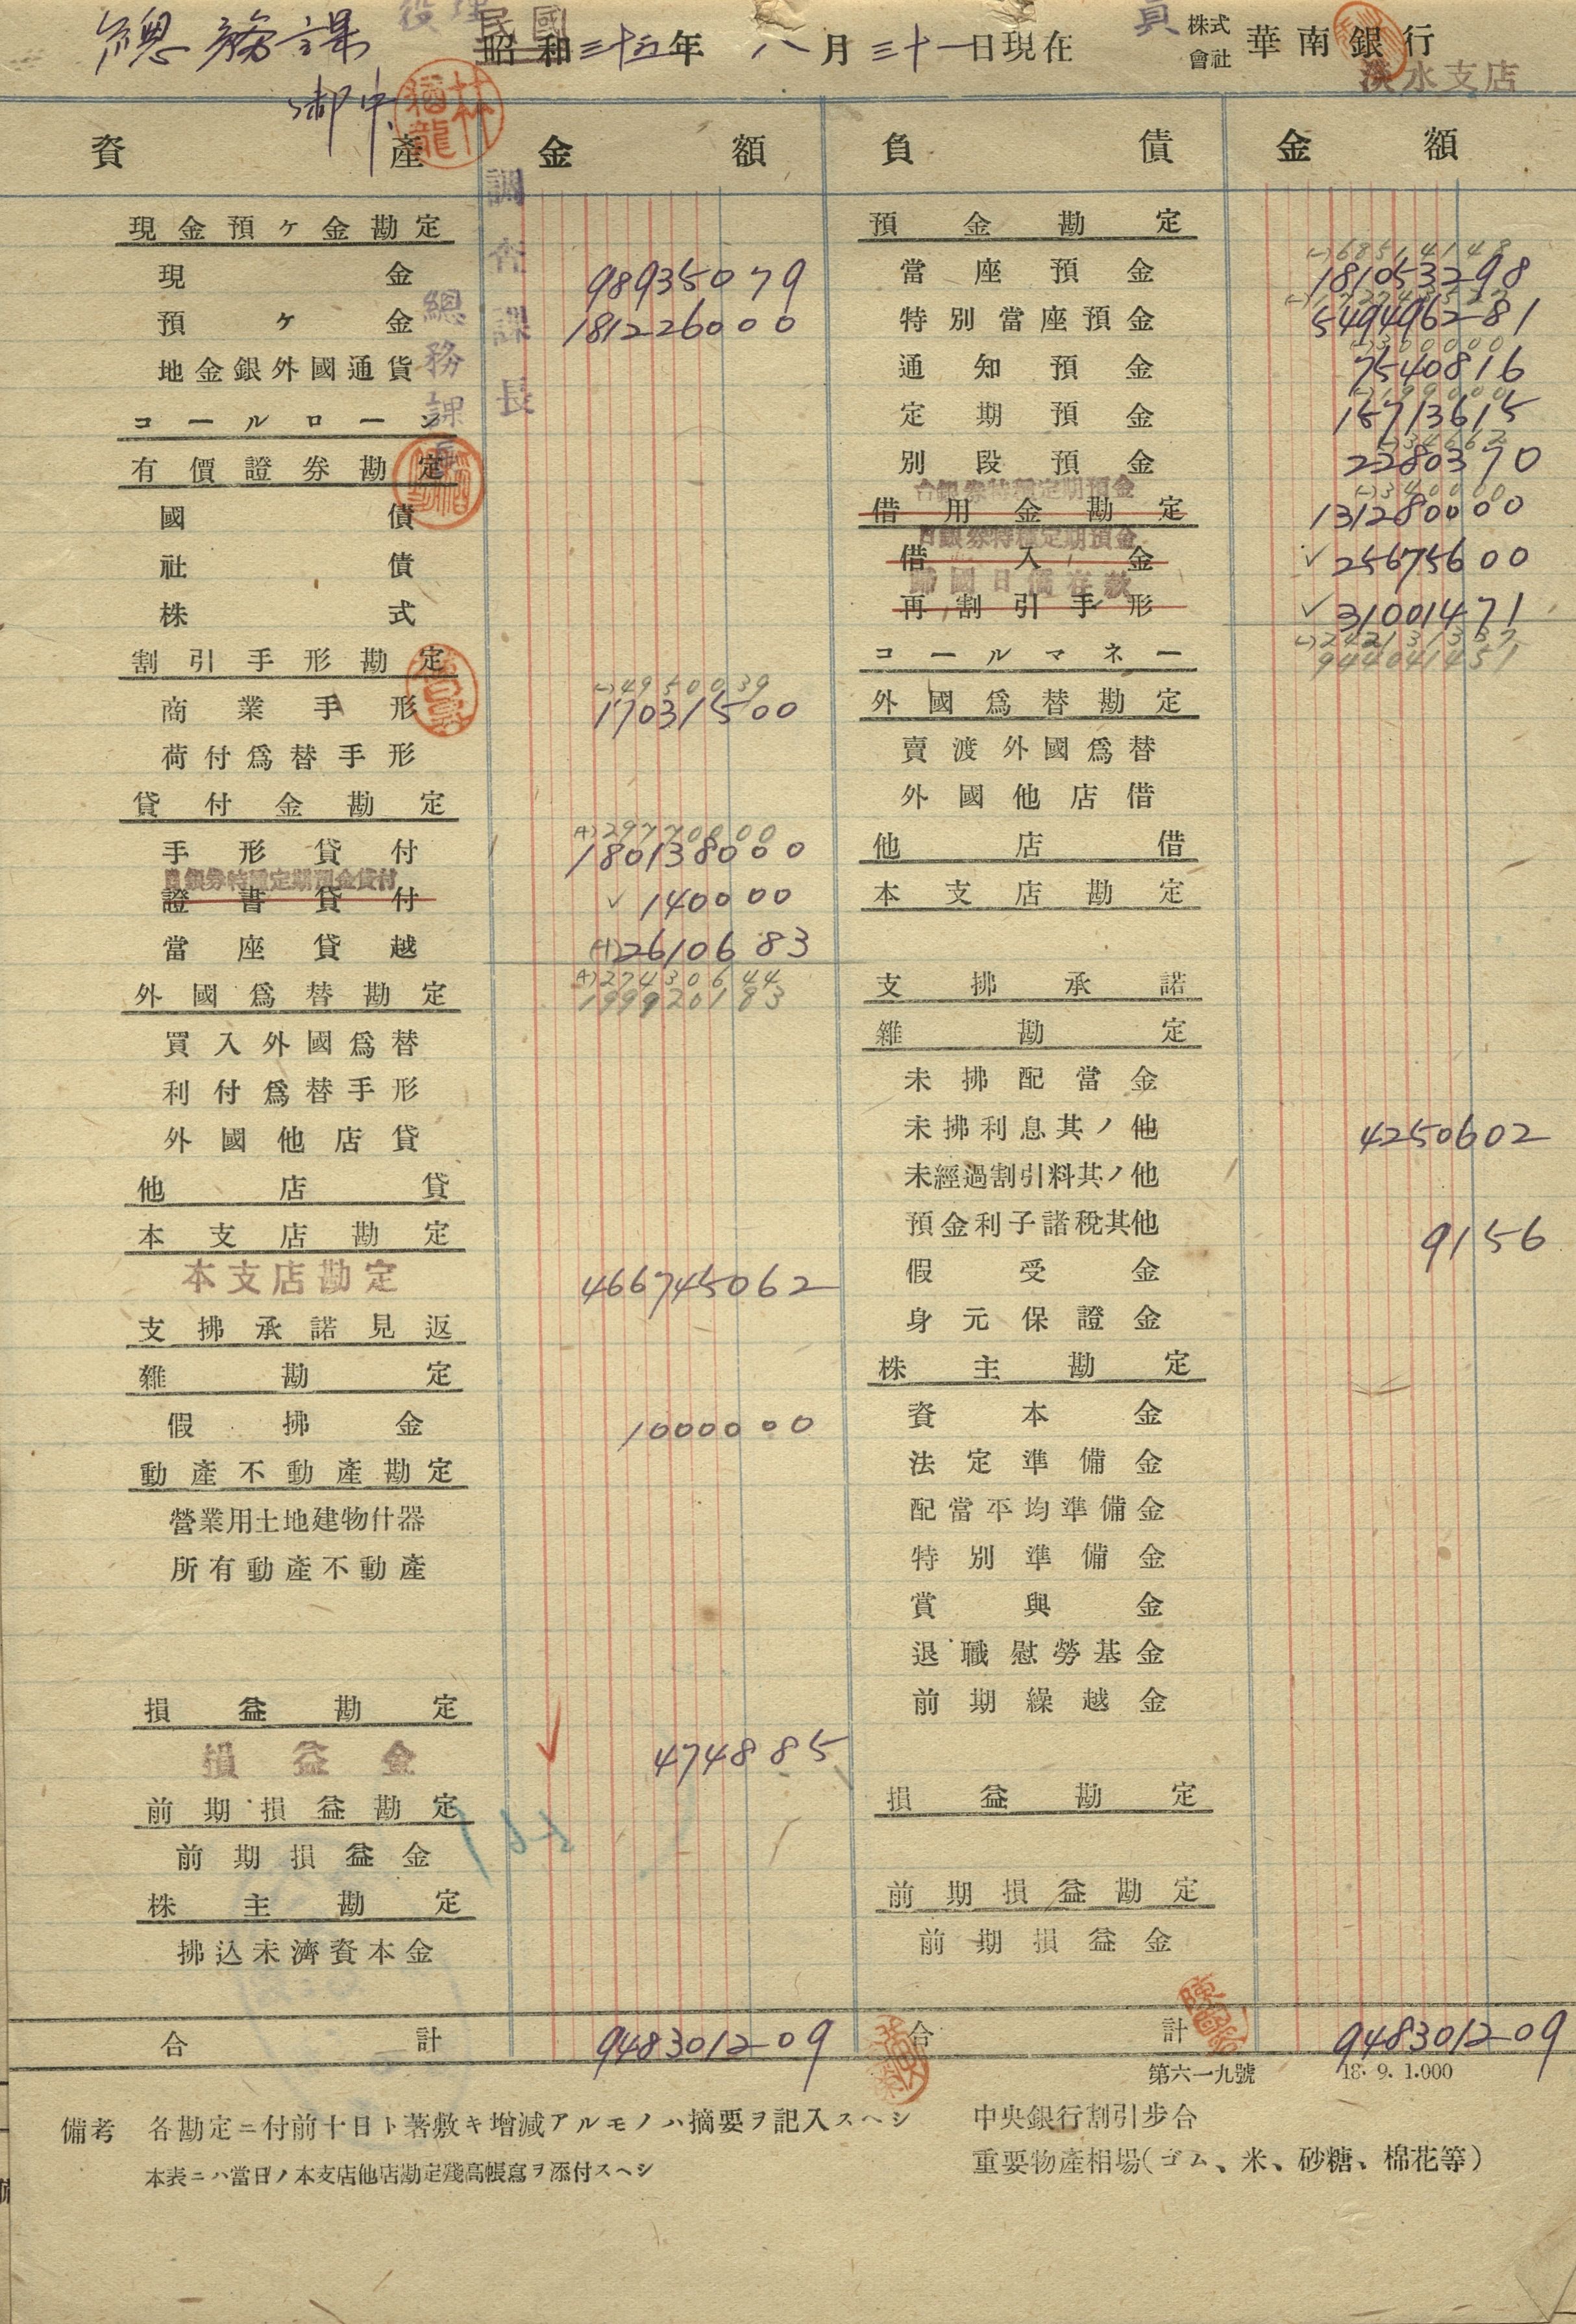 總務課 御中
民國
昭和三十五年 八月三十一日現在
株式會社 華南銀行
淡水支店
資產 金額 負債 金額
調查課長
總務課長
現金預ケ金勘定
現金 98935079
預ケ金 181226000
地金銀外國通貨
コールローン
有價證券勘定
國債
社債
株式
割引手形勘定
(-)4950039
商業手形 17031500
荷付爲替手形
貸付金勘定
(+)29770000
手形貸付 180138000
日銀券特種定期預金貸付
證書貸付 ✓ 140000
當座貸越 (+)2610683
(+)27430644
外國爲替勘定 199920183
買入外國爲替
利付爲替手形
外國他店貸
他店貸
本支店勘定
本支店勘定 466745062
支拂承諾見返
雜勘定
假拂金 1000000
動產不動產勘定
營業用土地建物什器
所有動產不動產
損益勘定
損益金 4748 85
前期損益勘定
前期損益金
株主勘定
拂込未濟資本金
合計 948301209
預金勘定
(-)68514148
當座預金 181053298
特別當座預金 549496281
(-)300000
通知預金 7540816
(-)199000
定期預金 15713615
(-)34662
別段預金 2280370
台銀券特種定期預金
(-)340000
借用金勘定 131280000
日銀券特種定期預金
借入金 ✓ 25675600
歸國日僑存款
再割引手形 ✓ 31001471
(-)242131337
コールマネー 944041451
外國爲替勘定
賣渡外國爲替
外國他店借
他店借
本支店勘定
支拂承諾
雜勘定
未拂配當金
未拂利息其ノ他 4250602
未經過割引料其ノ他
預金利子諸稅其他 9156
假受金
身元保證金
株主勘定
資本金
法定準備金
配當平均準備金
特別準備金
賞與金
退職慰勞基金
前期繰越金
損益勘定
前期損益勘定
前期損益金
合計 948301209
第六一九號 18. 9. 1.000
備考 各勘定ニ付前十日ト著敷キ增減アルモノハ摘要ヲ記入スヘシ
本表ニハ當日ノ本支店他店勘定殘高帳寫ヲ添付スヘシ
中央銀行割引步合
重要物產相場(ゴム、米、砂糖、棉花等)